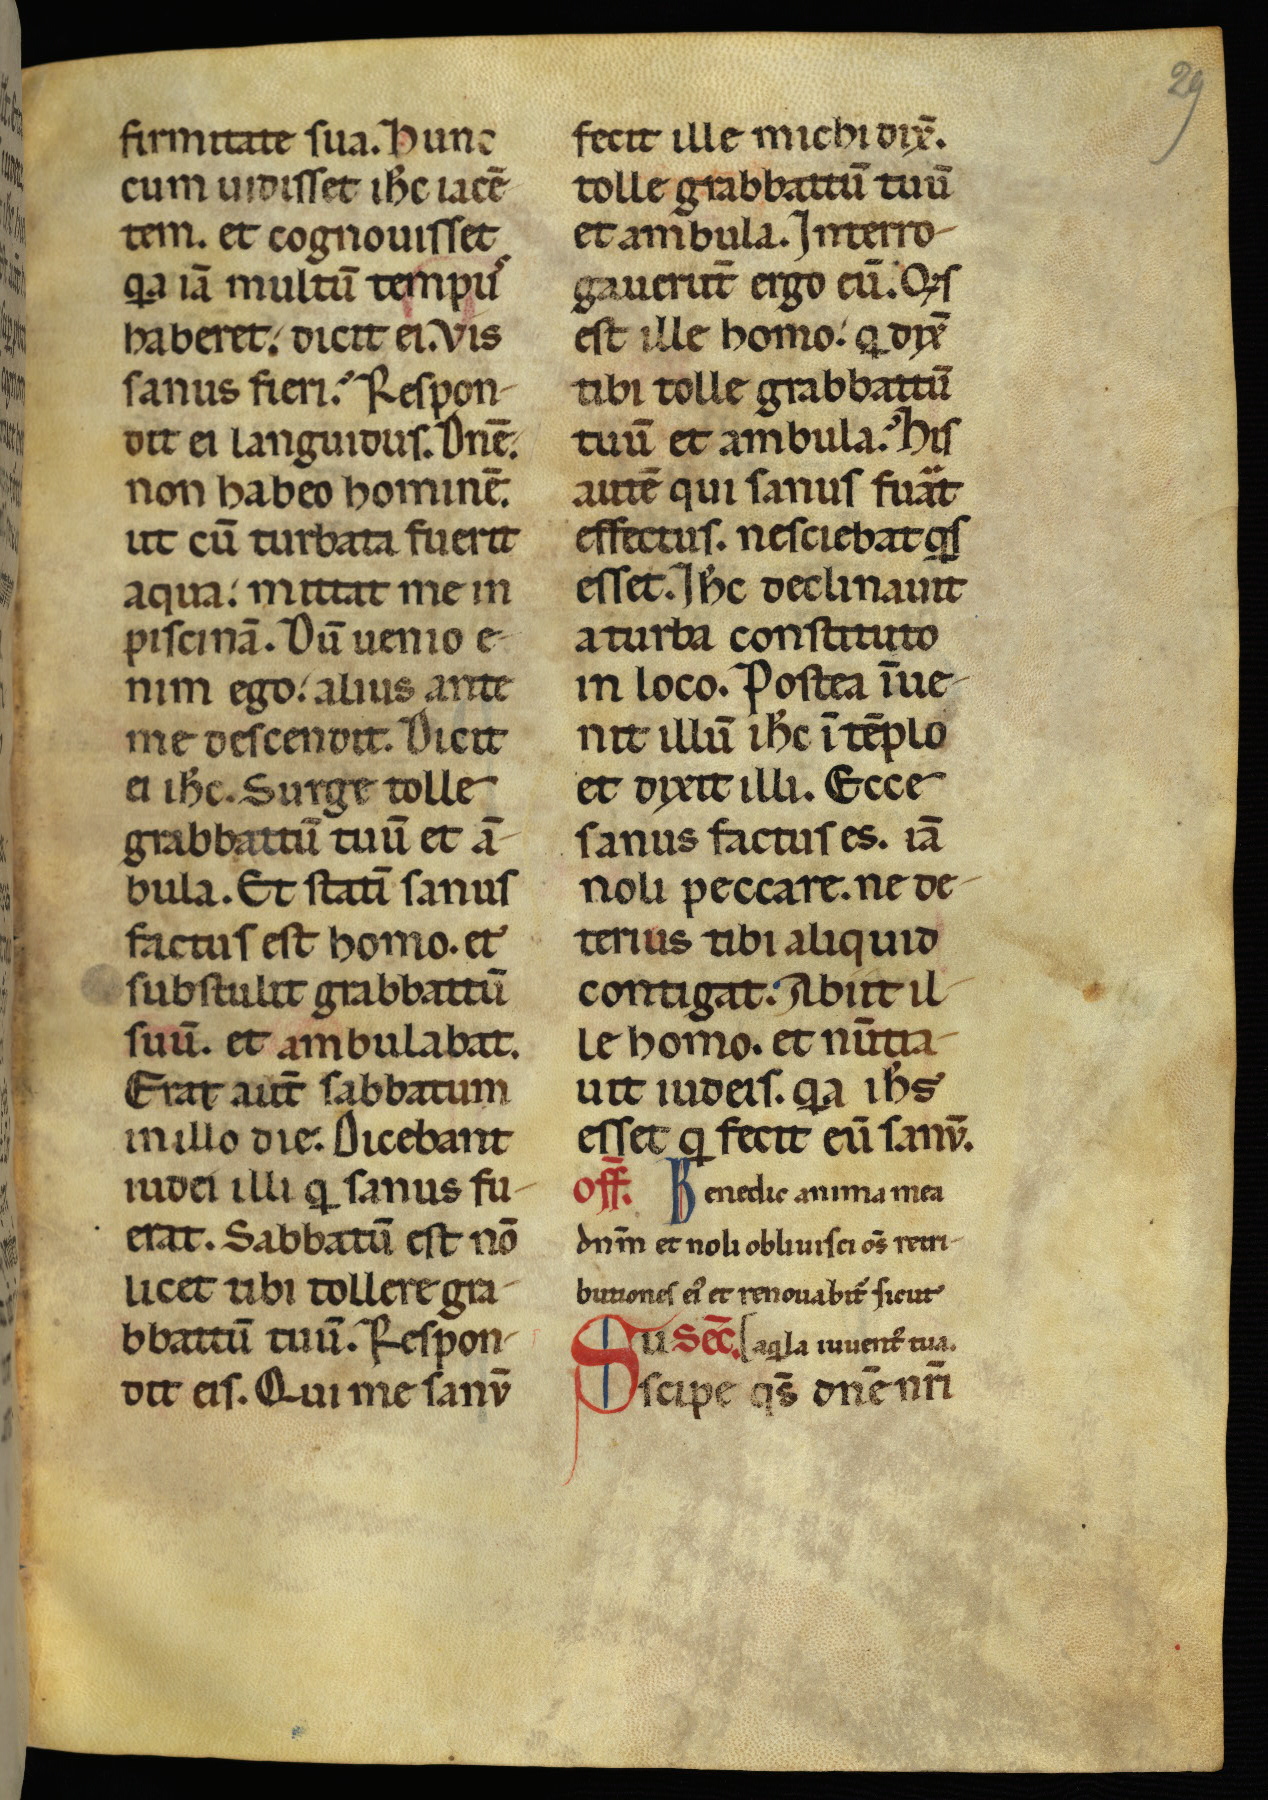 29
firmitate sua. Hunc
cum uidisset ihc̄ iacē
tem. et cognouisset
qa iā multū tempus
haberet. dicit ei. Vis
sanus fieri. Respon-
dit ei languidus. Dn̄e.
non habeo hominē.
ut cū turbata fuerit
aqua. mittat me in
piscinā. Dū uenio e-
nim ego. alius ante
me descendit. Dicit
ei ihc̄. Surge tolle
grabbattū tuū et ā-
bula. Et statī sanus
factus est homo. et
substulit grabbattū
suū. et ambulabat.
Erat aut̄ sabbatum
in illo die. Dicebant
iudei illi q sanus fu-
erat. Sabbatū est nō
licet tibi tollere gra-
bbattū tuū. Respon-
dit eis. Qui me sanū
fecit ille michi dix̄.
tolle grabbattū tuū
et ambula. Interro-
gauerut̄ ergo eū. Qis
est ille homo. q dix̄
tibi tolle grabbattū
tuū et ambula. His
autē qui sanus fuat
effectus. nesciebat qis
esset. Ihc̄ declinauit
a turba constituto
in loco. Postea īue-
nit illū ihc̄ ī tēplo
et dixit illi. Ecce
sanus factus es. iā
noli peccare. ne de-
terius tibi aliquid
contigat. Abiit il-
le homo. et nūtia-
uit iudeis. qa ihs̄
esset q fecit eū sanū.
off̄. Benedic anima mea
dnm̄ et noli obliuisci os̄ retri-
butiones ei' et renouabit̄ sicut
Su Sec̄. [aqla iuuent' tua.
scipe qs̄ dn̄e nr̄i